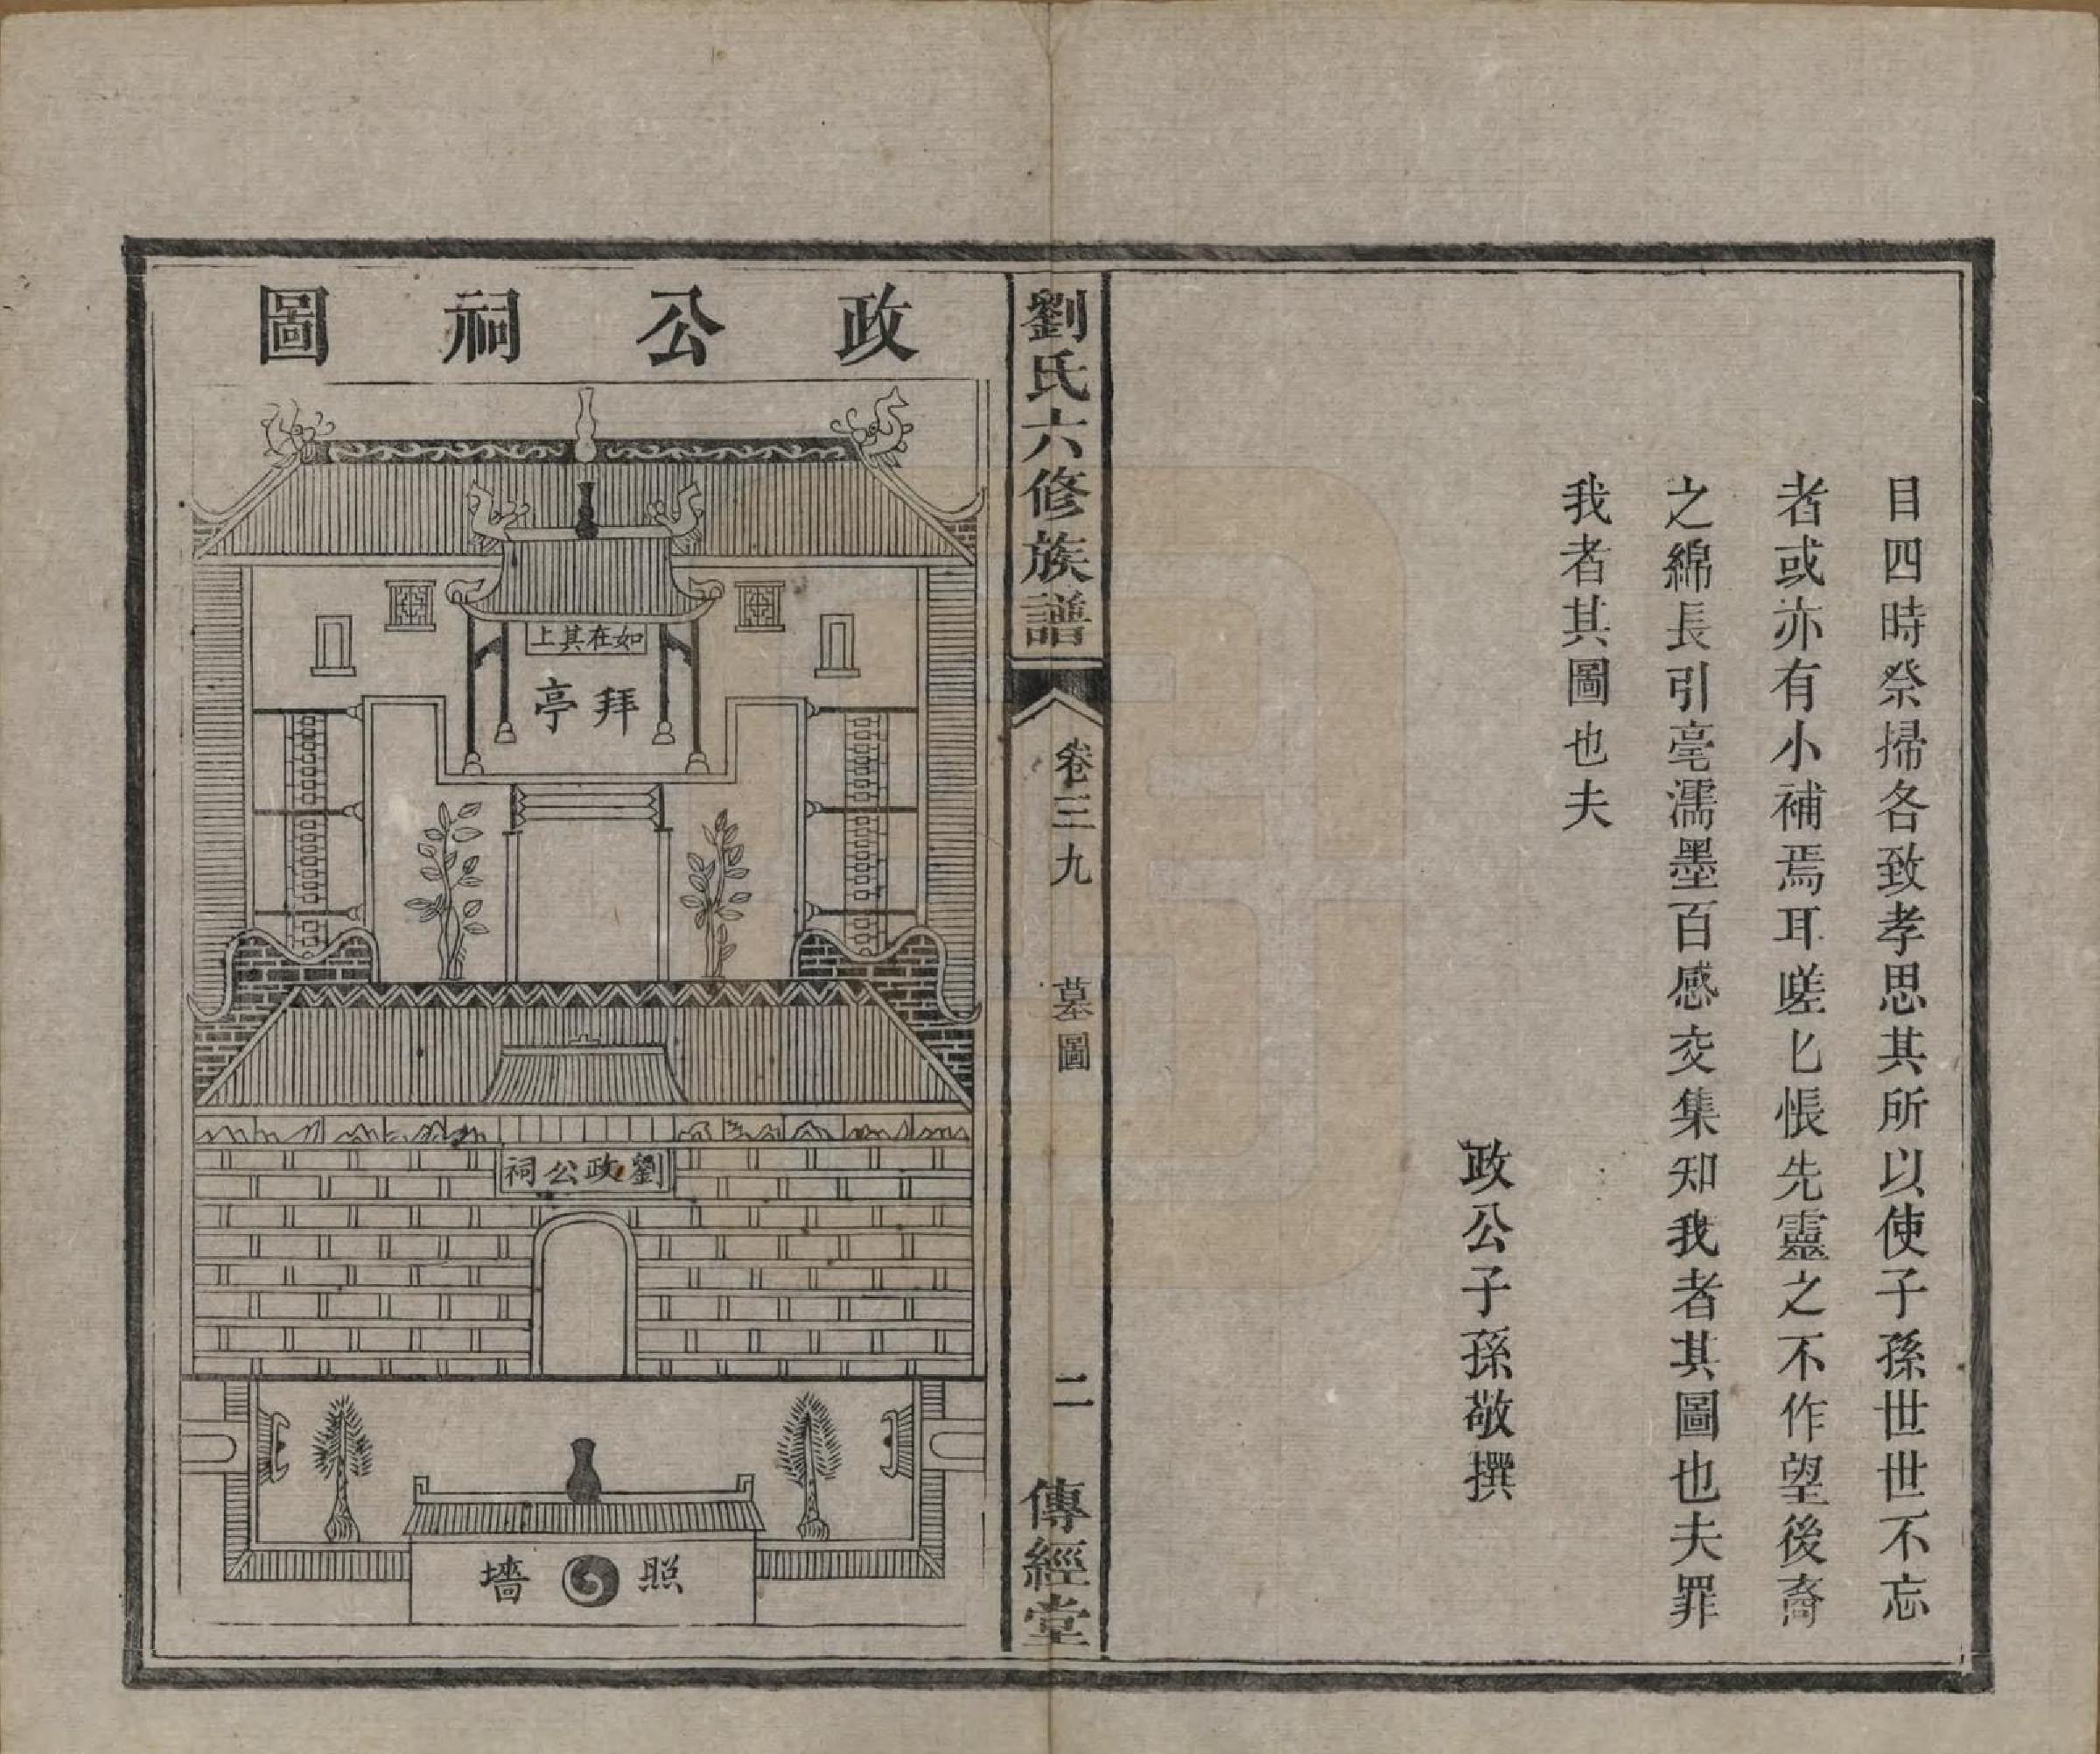 目四時祭掃各致孝思其所以使子孫世世不忘
者或亦有小補焉耳嗟匕悵先靈之不作望後裔
之綿長引毫濡墨百感交集知我者其圖也夫罪
我者其圖也夫
政公子孫敬撰
劉氏六修族譜
卷三九
墓圖
二
傳經堂
政公祠圖
如在其上
拜亭
劉政公祠
照墻